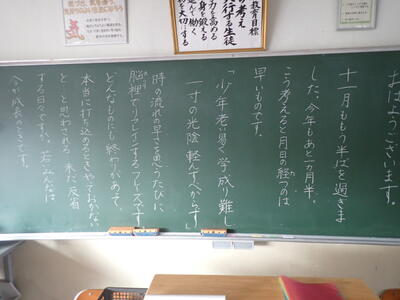 教育目標
考え
実行する生徒
力を高める
身を鍛える
進んで働く
切にする
おはようございます。
十一月ももう半ばを過ぎま
した。今年もあと一ヵ月半。
こう考えると月日の経つのは
早いものです。
「少年老い易く学成り難し
一寸の光陰軽んずべからず」
時の流れの早さを思うたびに、
脳裡でリフレインするフレーズです。
どんなものにも終わりがあって、
本当に打ち込めるときをやっておかない
と…と悩まされる、未だ反省
する日々ですが、若いみんなは
今が成長のときです。